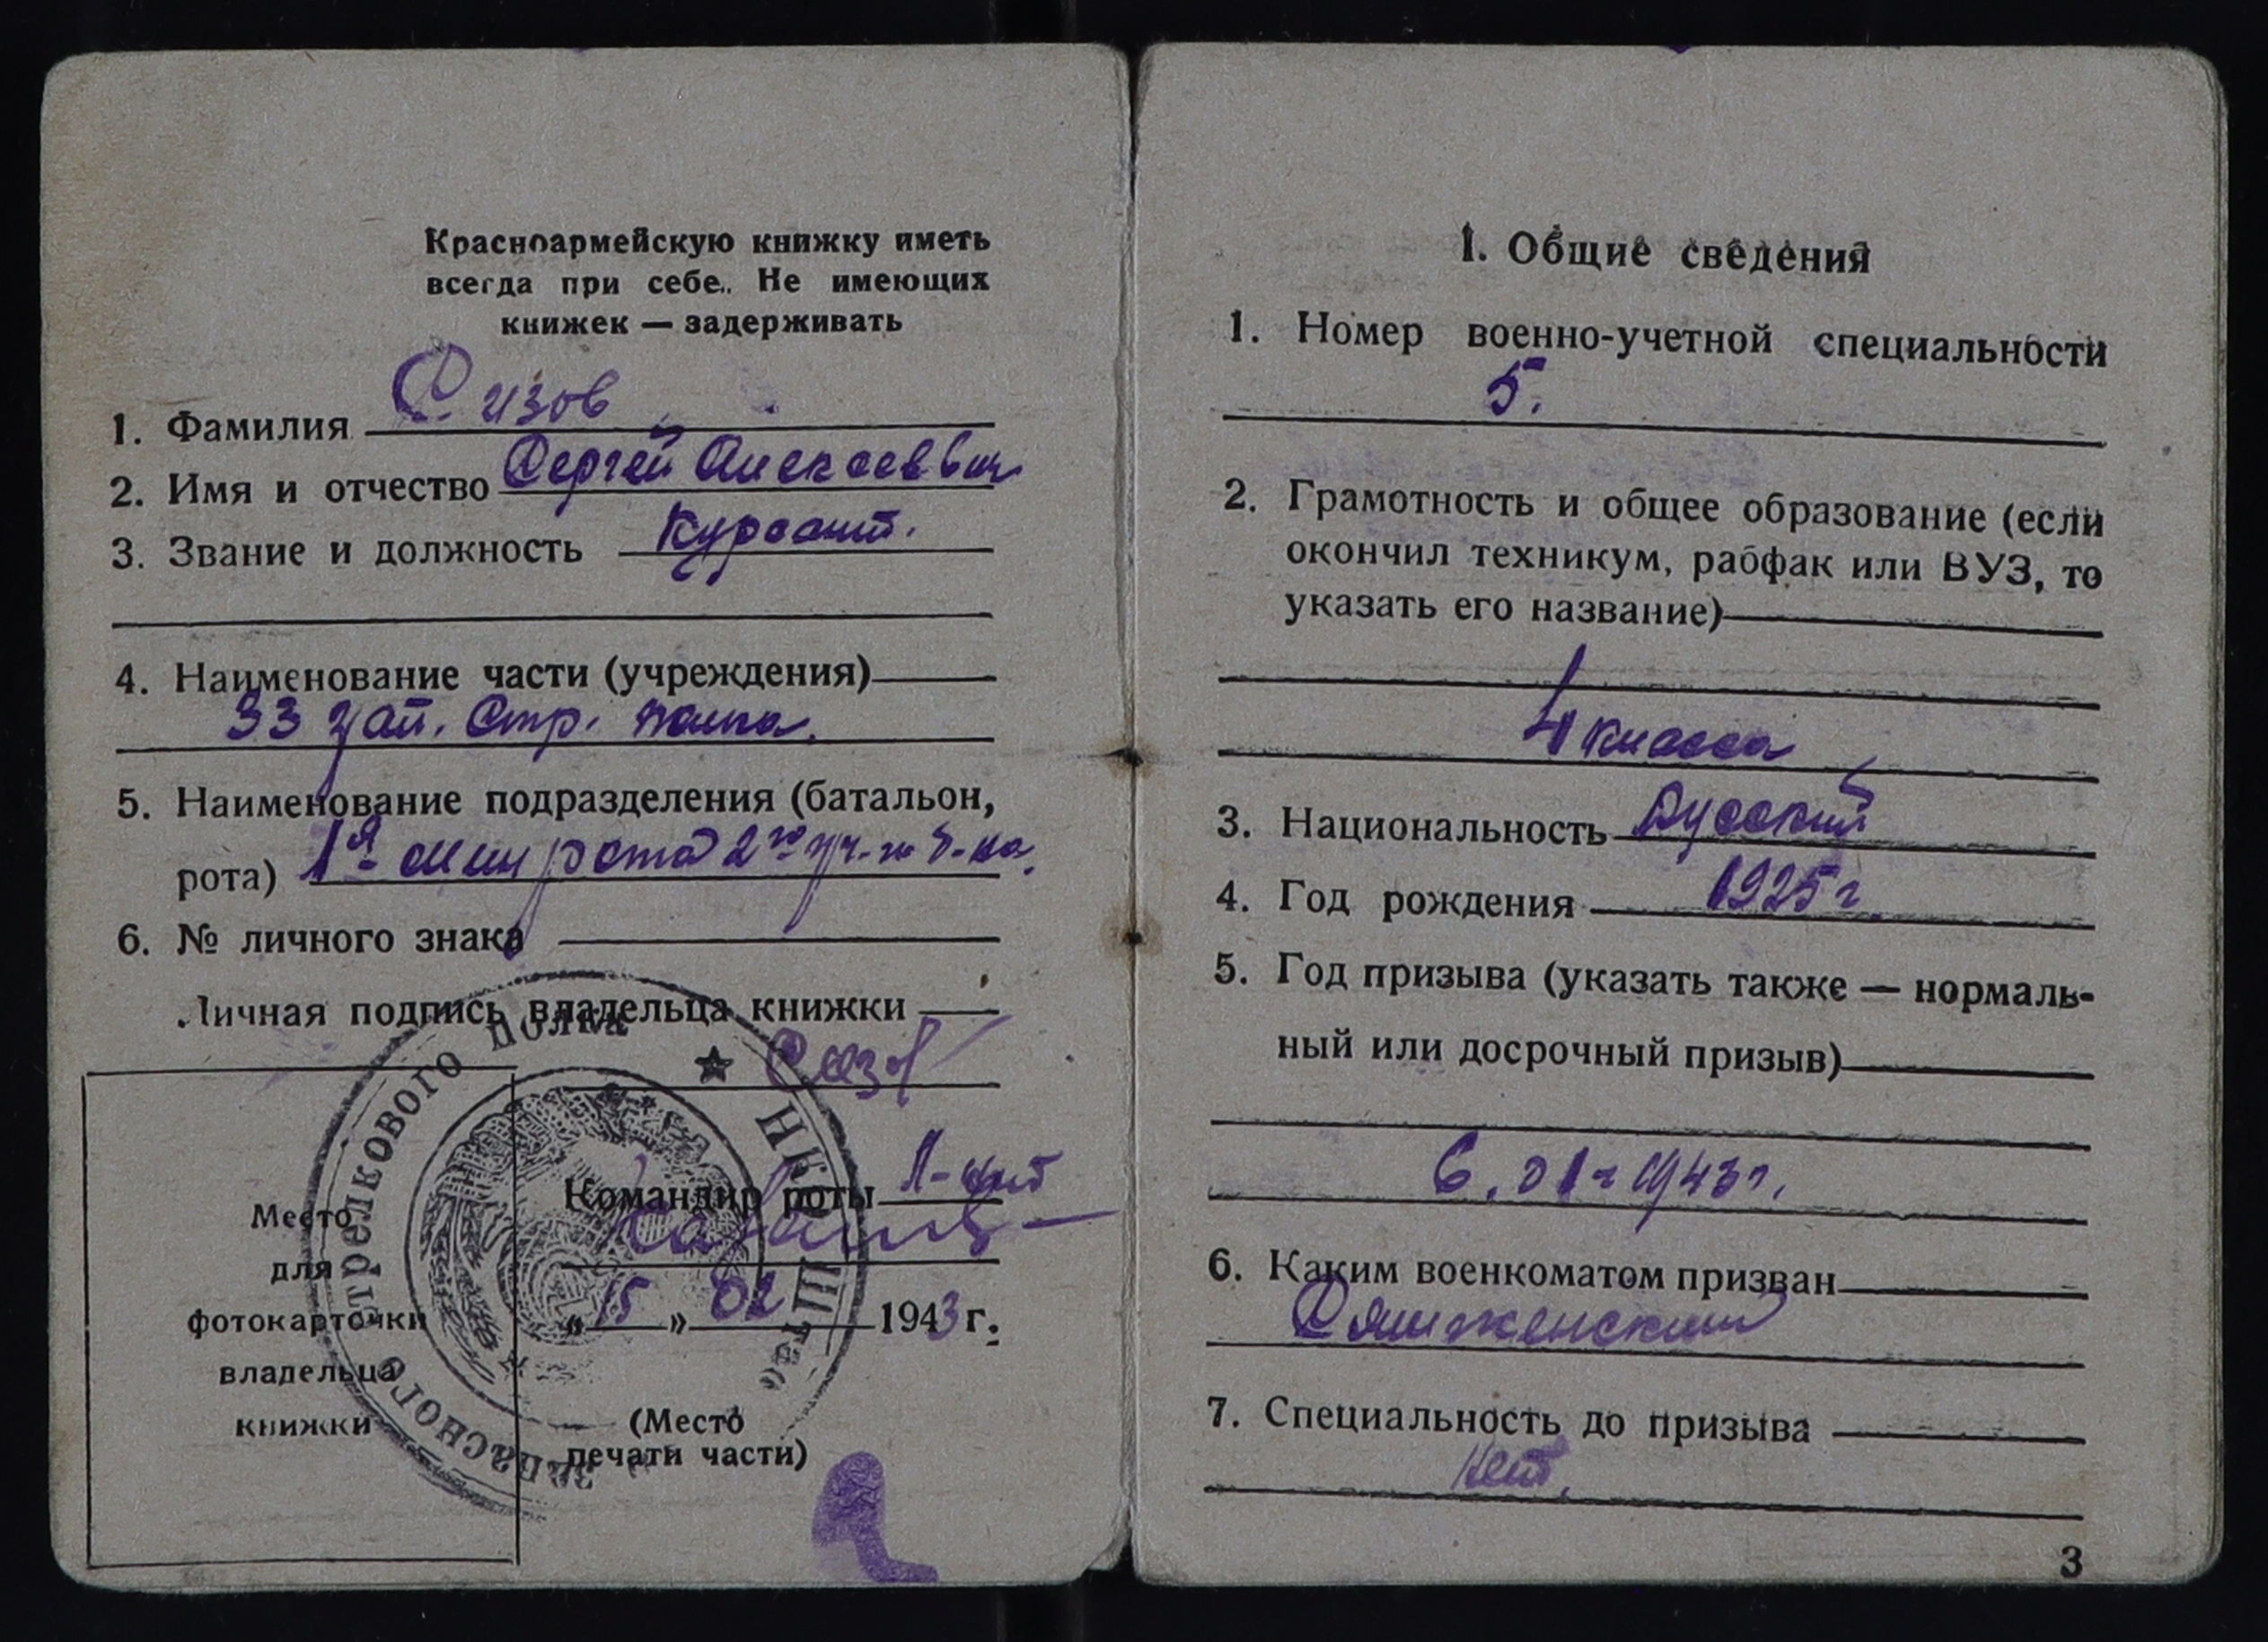 Красноармейскую книжку иметь
всегда при себе. Не имеющих
книжек — задерживать
1. Фамилия Сизов
2. Имя и отчество Сергей Алексеевич
3. Звание и должность Курсант.
4. Наименование части (учреждения)
33 зап. Стр. полка.
5. Наименование подразделения (батальон,
рота) 1я мин рота 2го уч. б-на.
6. № личного знака
Личная подпись владельца книжки
Сизов
Командир роты л-нт
«15» 02 1943 г.
Место
для
фотокарточки
владельца
книжки
(Место
печати части)
запасного стрелкового полка ★ НКО
I. Общие сведения
1. Номер военно-учетной специальности
5.
2. Грамотность и общее образование (если
окончил техникум, рабфак или ВУЗ, то
указать его название)
4 класса
3. Национальность Русский
4. Год рождения 1925 г.
5. Год призыва (указать также — нормаль-
ный или досрочный призыв)
6. 01 - 1943 г.
6. Каким военкоматом призван
7. Специальность до призыва
Нет.
3